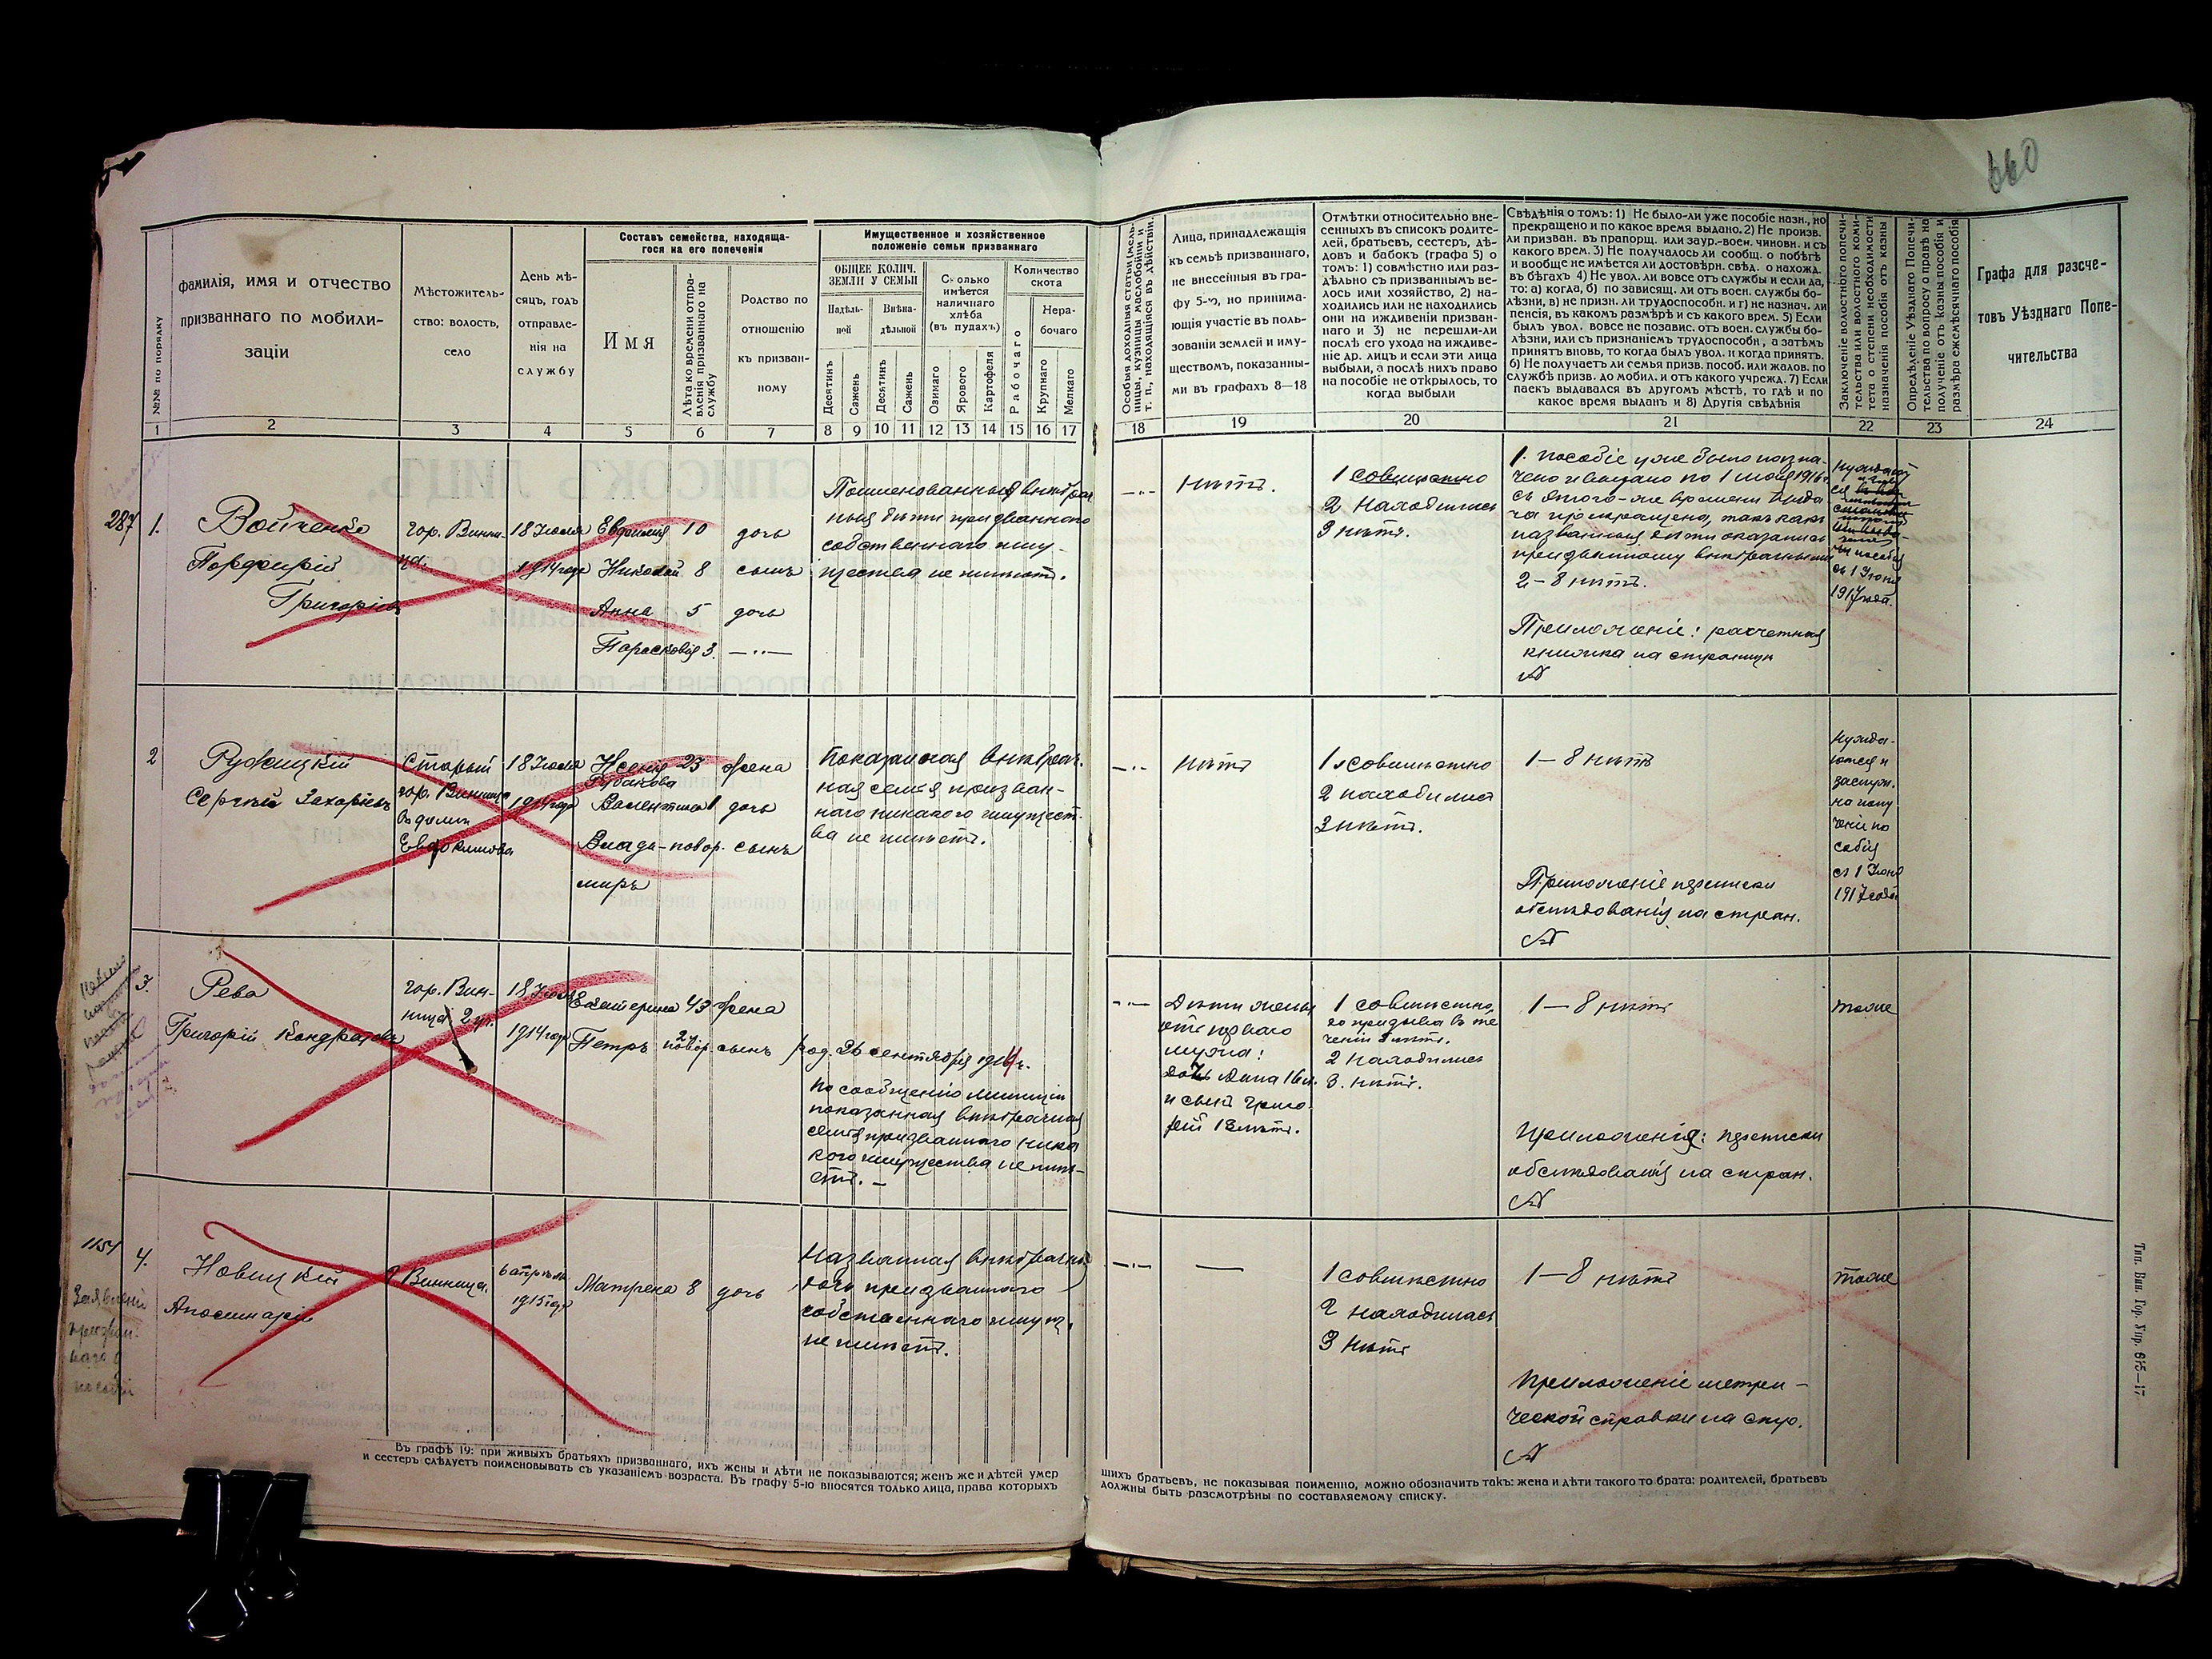 660
№№ по порядку
фамилія, имя и отчество
призваннаго по мобили-
заціи
Мѣстожитель-
ство: волость,
село
День мѣ-
сяцъ, годъ
отправле-
нія на
службу
Составъ семейства, находяща-
гося на его попеченіи
Имя
Лѣта ко времени отпра-
вленія призваннаго на
службу
Родство по
отношенію
къ призван-
ному
Имущественное и хозяйственное
положеніе семьи призваннаго
ОБЩЕЕ КОЛИЧ.
ЗЕМЛИ У СЕМЬИ
Надѣль-
ной
Внѣна-
дѣльной
Десятинъ
Сажень
Десятинъ
Сажень
Сколько
имѣется
наличнаго
хлѣба
(въ пудахъ)
Озимаго
Ярового
Картофеля
Количество
скота
Рабочаго
Нера-
бочаго
Крупнаго
Мелкаго
Особыя доходныя статьи (мель-
ницы, кузницы, маслобойни и
т. п., находящіяся въ дѣйствіи.
Лица, принадлежащія
къ семьѣ призваннаго,
не внесенныя въ гра-
фу 5-ю, но принима-
ющія участіе въ поль-
зованіи землей и иму-
ществомъ, показанны-
ми въ графахъ 8—18
Отмѣтки относительно вне-
сенныхъ въ списокъ родите-
лей, братьевъ, сестеръ, дѣ-
довъ и бабокъ (графа 5) о
томъ: 1) совмѣстно или раз-
дѣльно съ призваннымъ ве-
лось ими хозяйство, 2) на-
ходились или не находились
они на иждивеніи призван-
наго и 3) не перешли-ли
послѣ его ухода на иждиве-
ніе др. лицъ и если эти лица
выбыли, а послѣ нихъ право
на пособіе не открылось, то
когда выбыли
Свѣдѣнія о томъ: 1) Не было-ли уже пособіе назн., но
прекращено и по какое время выдано. 2) Не произв.
ли призван. въ прапорщ. или заур.-воен. чиновн. и съ
какого врем. 3) Не получалось ли сообщ. о побѣгѣ
и вообще не имѣется ли достовѣрн. свѣд. о нахожд.
въ бѣгахъ 4) Не увол. ли вовсе отъ службы и если да,
то: а) когда, б) по зависящ. ли отъ воен. службы бо-
лѣзни, в) не призн. ли трудоспособн. и г) не назнач. ли
пенсія, въ какомъ размѣрѣ и съ какого врем. 5) Если
былъ увол. вовсе не позавис. отъ воен. службы бо-
лѣзни, или съ признаніемъ трудоспособн., а затѣмъ
принятъ вновь, то когда былъ увол. и когда принятъ.
6) Не получаетъ ли семья призв. пособ. или жалов. по
службѣ призв. до мобил. и отъ какого учрежд. 7) Если
паекъ выдавался въ другомъ мѣстѣ, то гдѣ и по
какое время выданъ и 8) Другія свѣдѣнія
Заключеніе волостного попечи-
тельства или волостного коми-
тета о степени необходимости
назначенія пособія отъ казны
Опредѣленіе Уѣзднаго Попечи-
тельства по вопросу о правѣ на
полученіе отъ казны пособія и
размѣра ежемѣсячнаго пособія
Графа для разсче-
товъ Уѣзднаго Попе-
чительства
1 2 3 4 5 6 7 8 9 10 11 12 13 14 15 16 17 18 19 20 21 22 23 24
287 1.
Войченко
Порфирій
Григорьев
гор. Винни-
ца.
18 Іюля
1914 года
Евдокія 10 дочь
Николай 8 сынъ
Анна 5 дочь
Парасковія 3. —"—
Поименованныя внѣбрач
ныя дѣти призваннаго
собственнаго иму-
щества не имѣютъ.
—"—
нѣтъ.
1 совмѣстно
2 находились
3 нѣтъ.
1. Пособіе уже было назна-
чено и выдано по 1 1916 г.
съ этого-же времени выда
ча прекращена, такъ какъ
названныя дѣти оказались
призванному внѣбрачными
2—8 нѣтъ.
Приложеніе: расчетная
книжка на страницѣ
съ 1 Іюня
1917 года.
2
Ружицкій
Сергѣй Захарьевъ
Старый
гор. Винница
въ домѣ
Евдокимова
18 Іюля
1914 года
Ксенія 23 жена
Рубанова
Валентина 1 дочь
Влади- новор. сынъ
миръ
Показанная внѣбрач.
ная семья призван-
наго никакого имущест-
ва не имѣетъ.
—"—
нѣтъ
1 совмѣстно
2 находились
3 нѣтъ.
1—8 нѣтъ
Приложеніе переписки
обслѣдованія на стран.
нужда-
ется и
заслуж.
на полу
чені по
собія
съ 1 Іюня
1917 года
3.
Рева
Григорій Кондратовъ
гор. Вин-
ница 2 уч.
18 Іюля
1914 года
Екатерина 43 жена
Петръ новор. сынъ
род. 26 сентября 1914 г.
По сообщенію милиціи
показанная внѣбрачная
семья призваннаго ника
кого имущества не имѣ-
етъ. —
—"—
Дѣти жены
отъ перваго
мужа:
дочь Анна 16 л.
и сынъ Григо-
рій 13 лѣтъ.
1 совмѣстно,
до призыва въ те
ченіи лѣтъ.
2 находились
3. нѣтъ.
1—8 нѣтъ
Приложенія: переписки
обслѣдованія на стран.
тоже
1154 4.
Новицкій
Аполинарій
Винница.
6 апрѣля
1915 года
Матрена 8 дочь
Названная внѣбрачная
дочь призваннаго
собственнаго имущ.
не имѣетъ.
—"—
—
1 совмѣстно
2 находилась
3 нѣтъ
1—8 нѣтъ
Приложеніе метри-
ческой справки на стр.
тоже
Заявленіе
призван-
наго о
пособіи
Въ графѣ 19: при живыхъ братьяхъ призваннаго, ихъ жены и дѣти не показываются; женъ же и дѣтей умер
и сестеръ слѣдуетъ поименовывать съ указаніемъ возраста. Въ графу 5-ю вносятся только лица, права которыхъ
шихъ братьевъ, не показывая поименно, можно обозначить такъ: жена и дѣти такого то брата: родителей, братьевъ
должны быть разсмотрѣны по составляемому списку.
Тип. Вин. Гор. Упр. 615—17